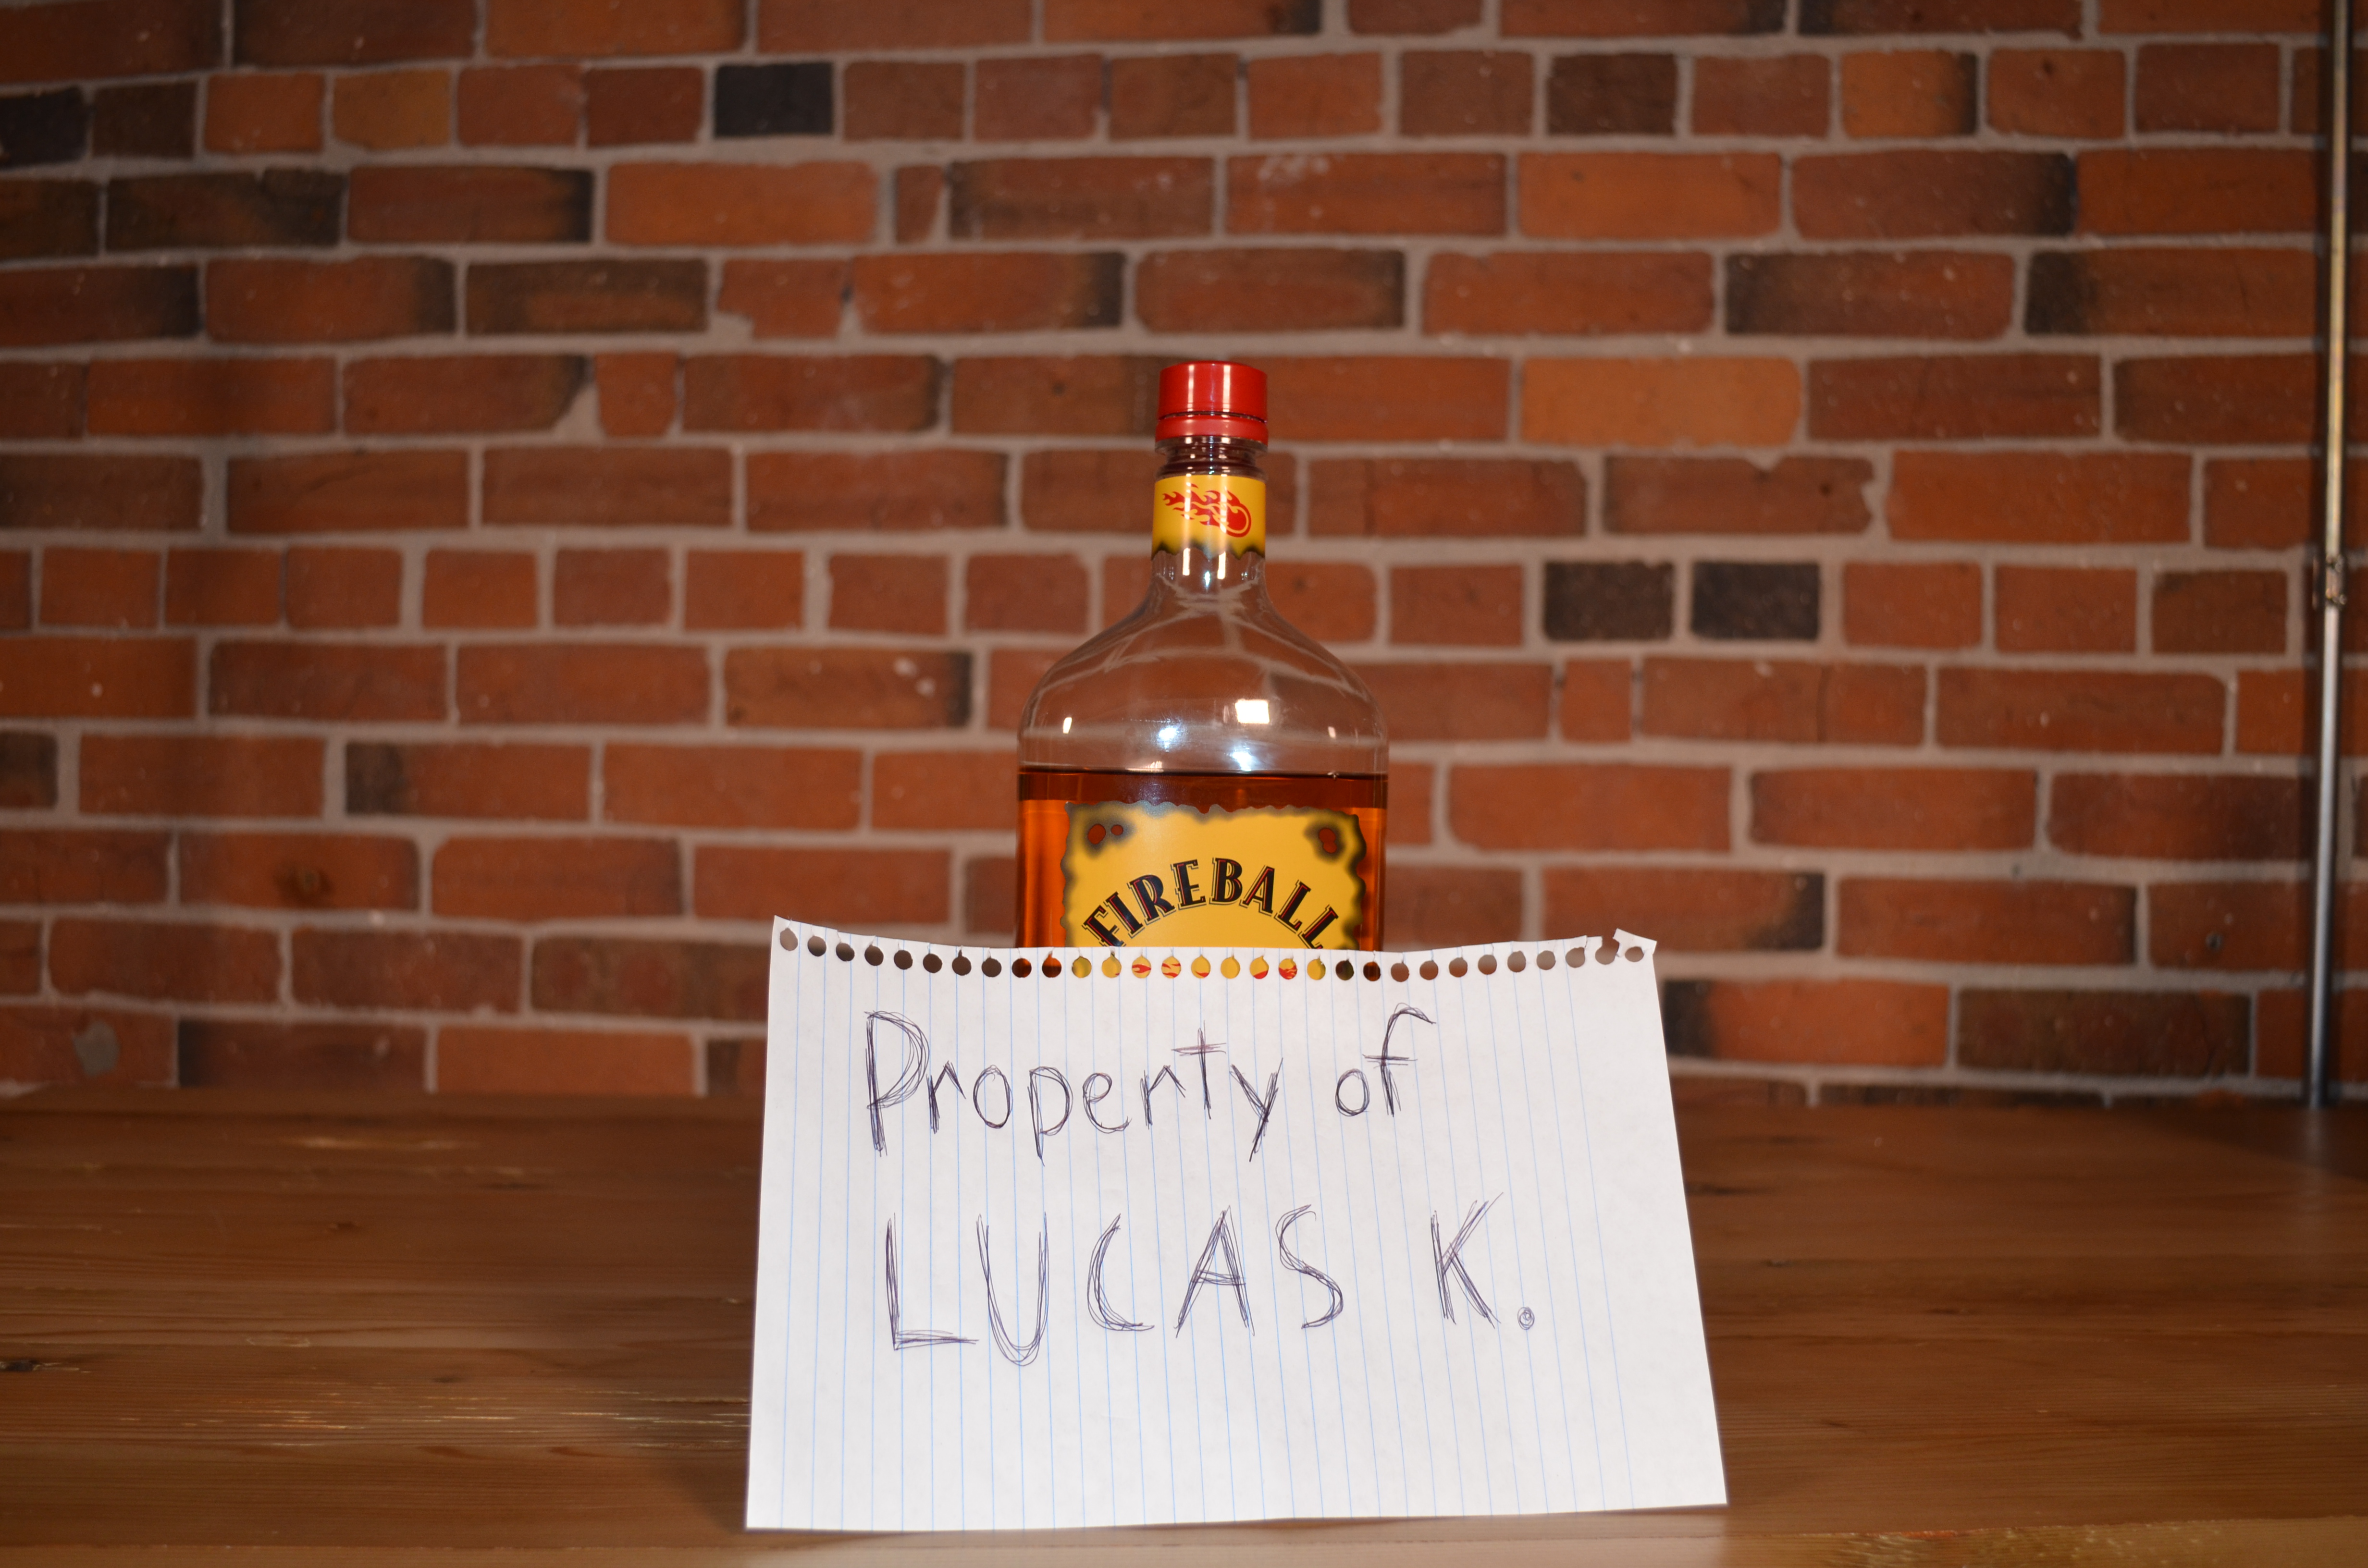 FIREBALL
Property of
LUCAS K.